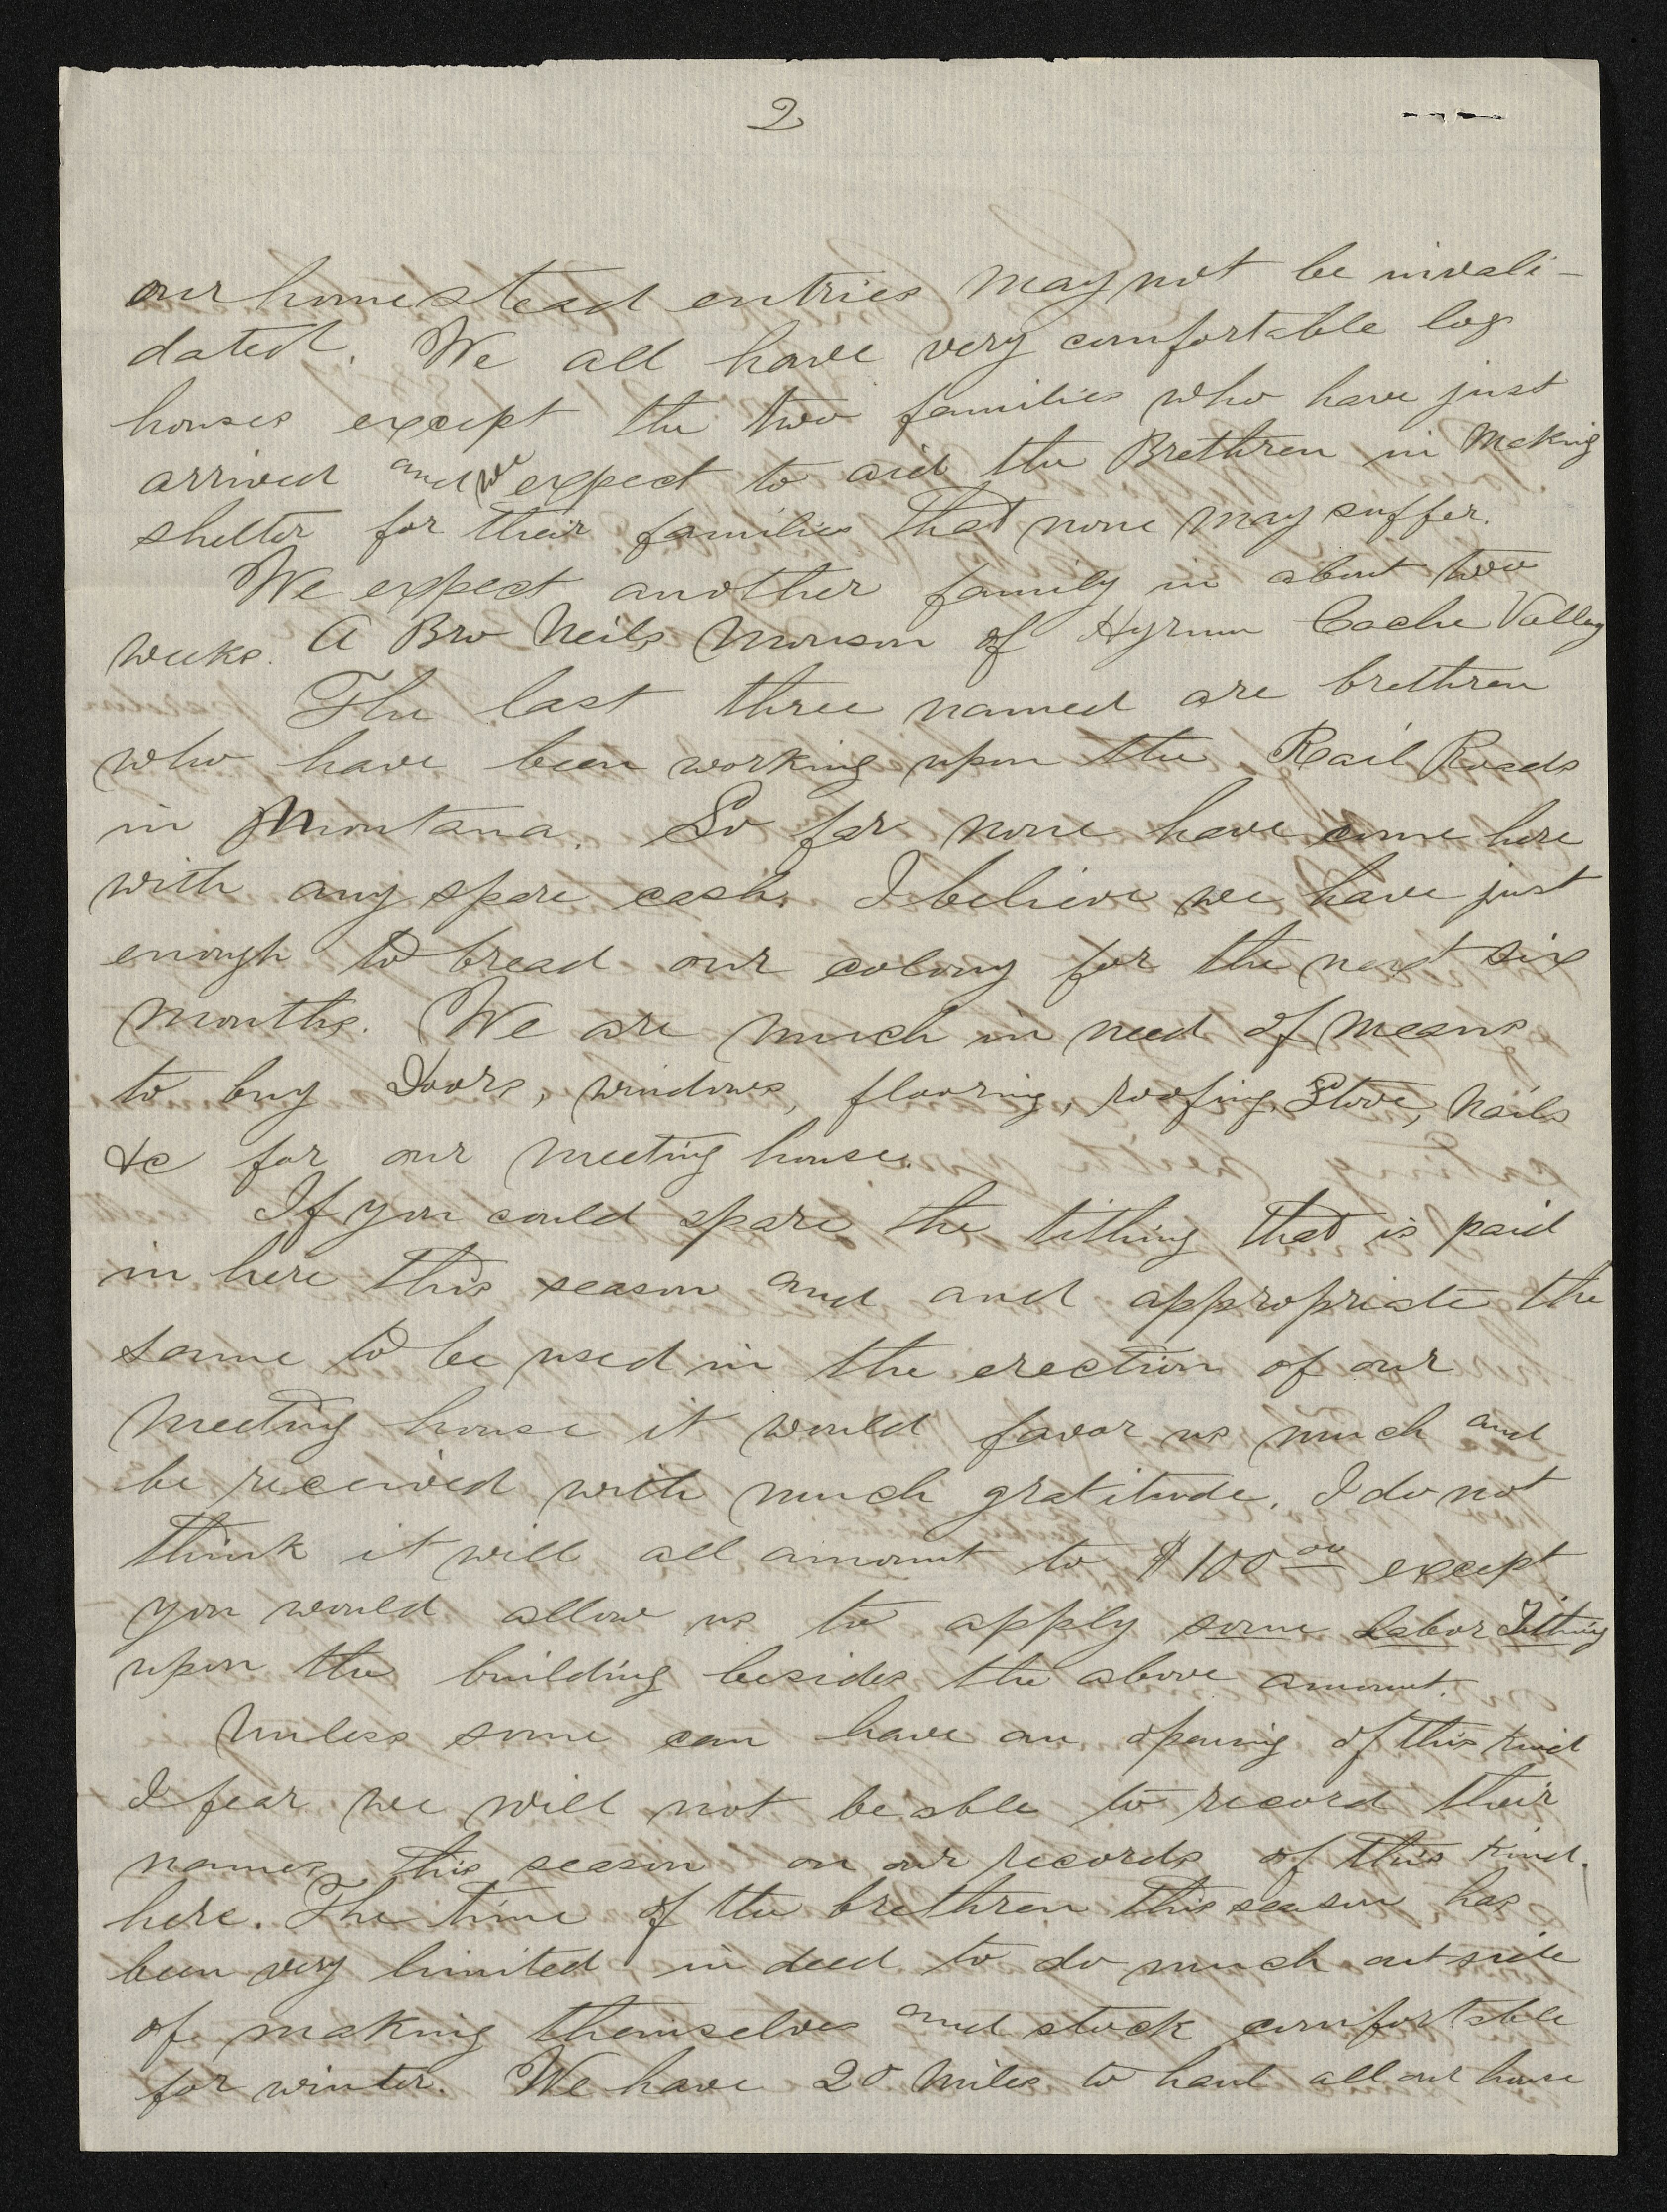 2
our homestead entries may not be invali-
dated. We all have very comfortable log
houses except the two families who have just
arrived and we expect to aid the Brethren in making
shelter for their families that none may suffer.
We expect another family in about two
weeks. A Bro Neils Monson of Hyrum Cache Valley
The last three named are brethren
who have been working upon the Rail Roads
in Montana. So far none have come here
with any spare cash. I believe we have just
enough to bread our colony for the next six
months. We are much in need of means
to buy Doors, windows, flooring, roofing, Stove, Nails
&c for our meeting house.
If you could spare the tithing that is paid
in here this season and and appropriate the
same to be used in the erection of our
meeting house it would favor us much and
be received with much gratitude. I do not
think it will all amount to $100 00 except
you would allow us to apply some Labor Tithing
upon the building besides the above amount.
Unless some can have an opening of this kind
I fear we will not be able to record their
names this season on our records of this kind.
here. The time of the brethren this season has
been very limited in deed to do much outside
of making themselves and stock comfortable
for winter. We have 20 miles to haul all our house